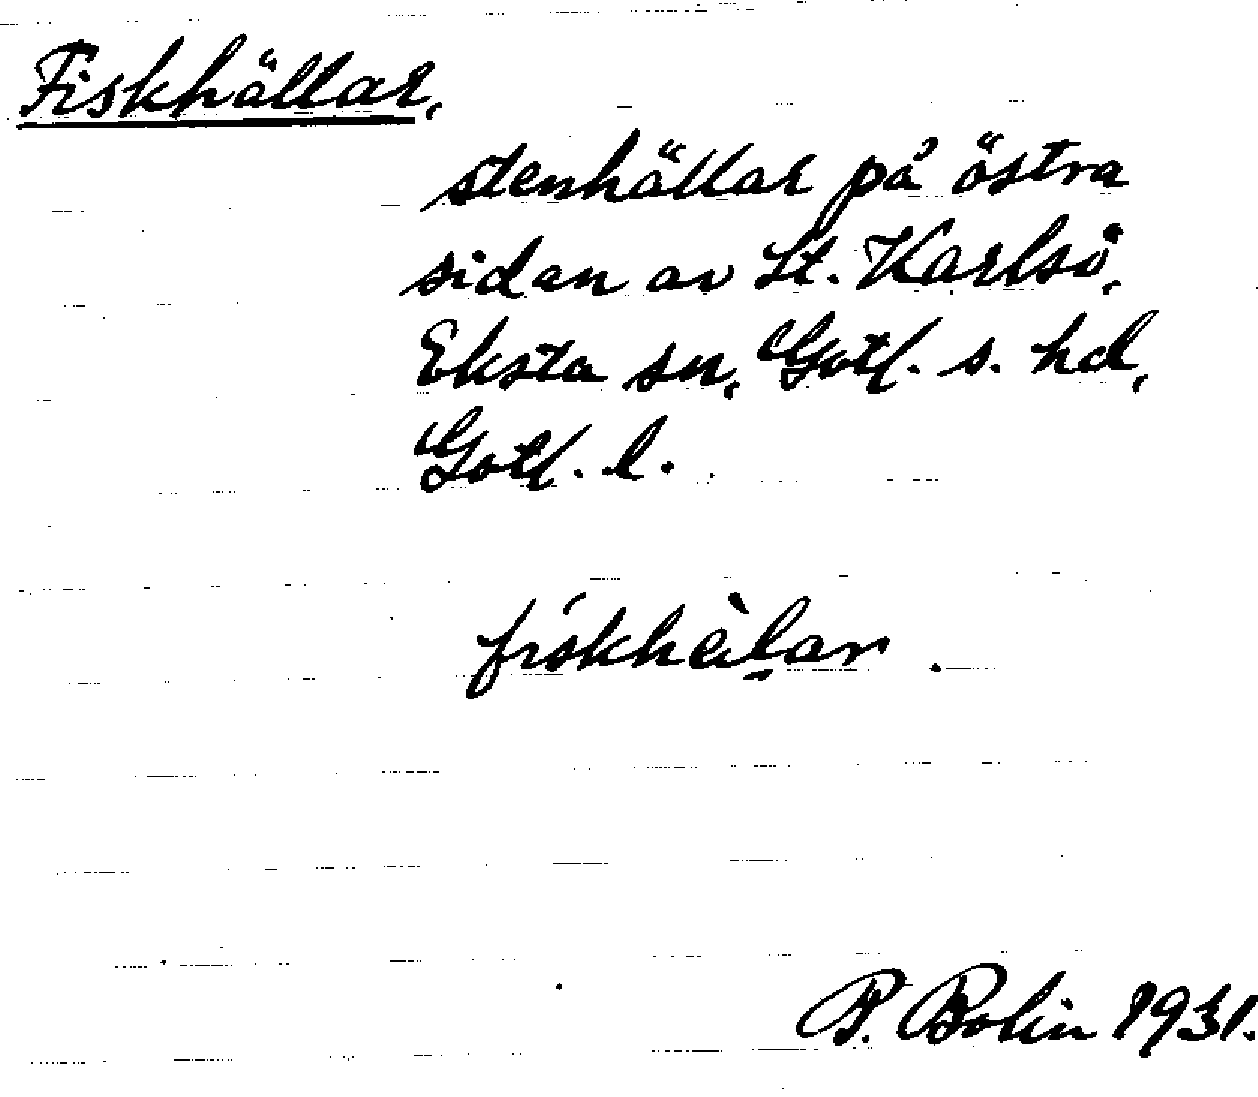 Fiskhällar,
stenhällar på östra
sidan av St. Karlsö,
Eksta sn, Gotl. s. hd,
Gotl. l.
fiskhälar.
P. Bolin 1931.